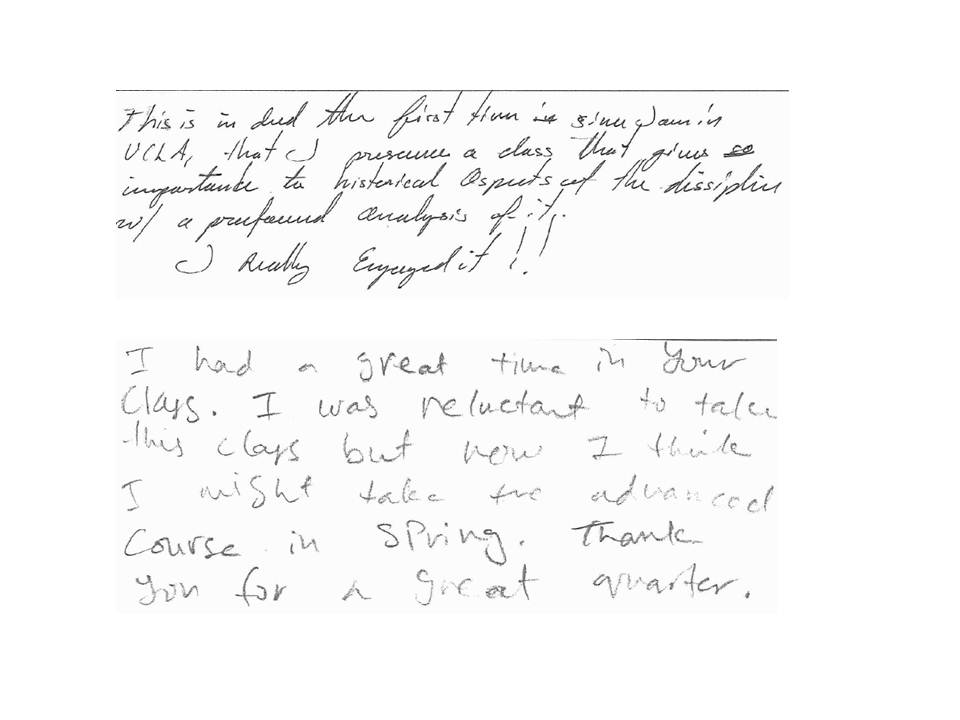 This is in deed the first time is since I am in
UCLA, that I presence a class that gives so
importance to historical aspects of the dissiplin
w/ a profound analysis of it.
I Really Enjoyed it !!
I had a great time in your
class. I was reluctant to take
this class but now I think
I might take the advanced
course in spring. Thank
you for a great quarter.